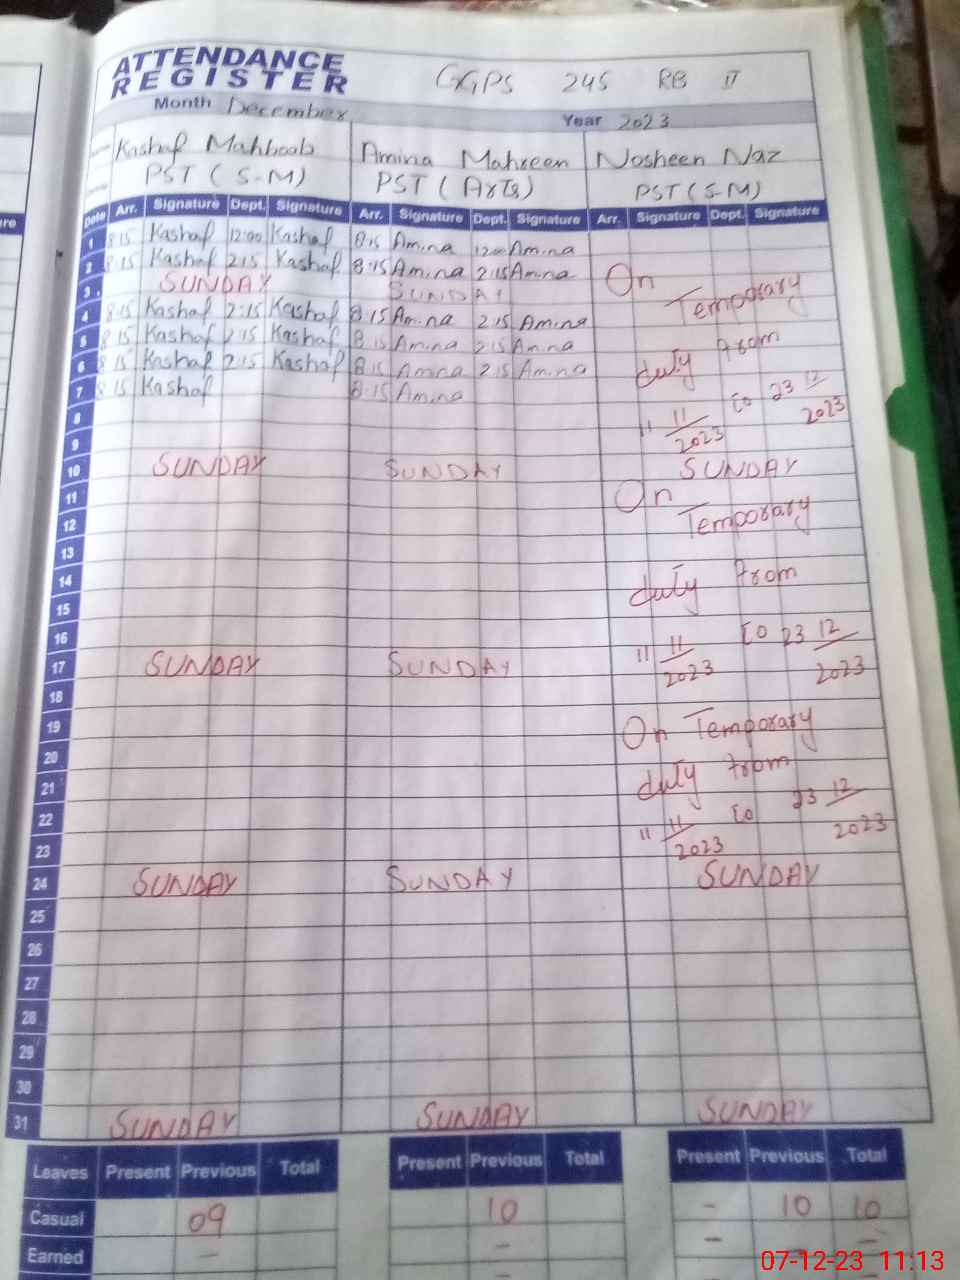 ATTENDANCE
REGISTER
GGPS 245 RB II
Month December
Year 2023
Kashaf Mahboob Amina Mahreen Nosheen Naz
PST (S-M) PST (Arts) PST (S-M)
Date Arr. Signature Dept. Signature Arr. Signature Dept. Signature Arr. Signature Dept. Signature
1 8:15 Kashaf 12:00 Kashaf 8:15 Amina 12:00 Amina
2 8:15 Kashaf 2:15 Kashaf 8:15 Amina 2:15 Amina On
3 SUNDAY SUNDAY Temporary
4 8:15 Kashaf 2:15 Kashaf 8:15 Amina 2:15 Amina
5 8:15 Kashaf 2:15 Kashaf 8:15 Amina 2:15 Amina from
6 8:15 Kashaf 2:15 Kashaf 8:15 Amina 2:15 Amina duty
7 8:15 Kashaf 8:15 Amina
8 11 11/2023 to 23 12/2023
9
10 SUNDAY SUNDAY SUNDAY
11 On
12 Temporary
13
14 duty from
15
16 11 11/2023 to 23 12/2023
17 SUNDAY SUNDAY
18
19 On Temporary
20
21 duty from
22 11 11/2023 to 23 12/2023
23
24 SUNDAY SUNDAY SUNDAY
25
26
27
28
29
30
31 SUNDAY SUNDAY SUNDAY
Leaves Present Previous Total Present Previous Total Present Previous Total
Casual 09 10 - 10 10
Earned - - - - -
07-12-23 11:13